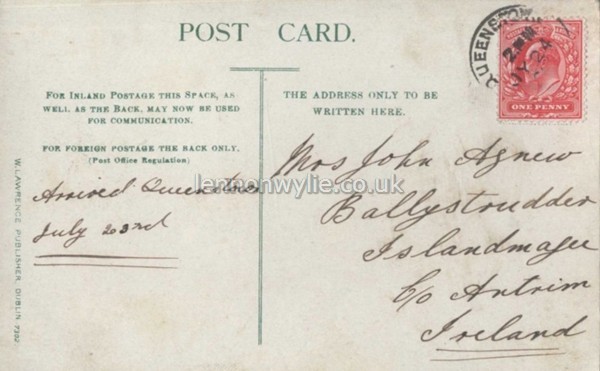 POST CARD.
FOR INLAND POSTAGE THIS SPACE, AS
WELL AS THE BACK, MAY NOW BE USED
FOR COMMUNICATION.
FOR FOREIGN POSTAGE THE BACK ONLY.
(Post Office Regulation)
THE ADDRESS ONLY TO BE
WRITTEN HERE.
QUEENSTOWN
JY 24
ONE PENNY
Arrived Queenstown
July 23rd
Mrs John Agnew
Ballystrudder
Islandmagee
C/o Antrim
Ireland
lennonwylie.co.uk
W. LAWRENCE, PUBLISHER, DUBLIN